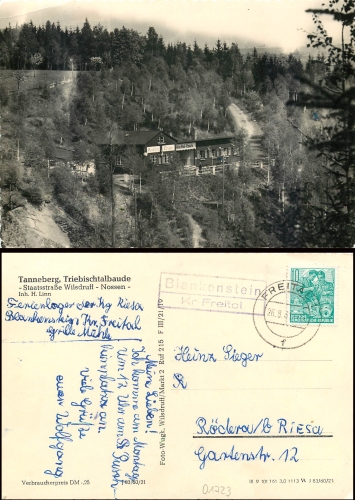 Tanneberg, Triebischtalbaude
- Staatsstraße Wilsdruff - Nossen -
Inh. H. Linn
Ferienlager der Kg Riesa
Blankenstein, Kr. Freital
Mühle
Meine Lieben!
Ich komme am Montag
um 12 Uhr am
an
Viele Grüße
euer Wolfgang
Verbraucherpreis DM -,25
Foto-Wugk, Wilsdruff/Markt 2 Ruf 215 F III/21/10
Blankenstein
Kr Freital
FREITAL
10
Heinz Sieger
R
Röderau b/ Riesa
Gartenstr. 12
01723